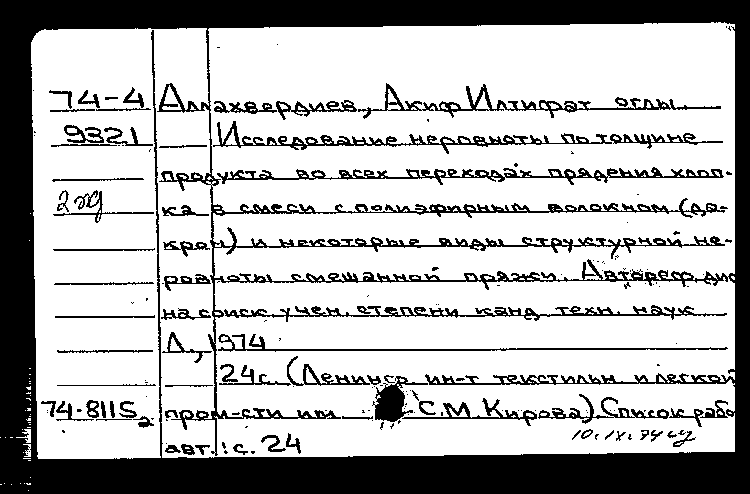 74-4 Аллахвердиев, Акиф Илтифат оглы.
9321 Исследование неровноты по толщине
продукта во всех переходах прядения хлоп-
2 ка в смеси с полиэфирным волокном (ла-
кром) и некоторые виды структурной не-
ровноты смешанной пряжи. Автореф. дис
на соиск. учен. степени канд. техн. наук
Л., 1974
24с. (Ленингр. ин-т текстильн и легкой
74-8115₂ пром-сти им С.М. Кирова) Список рабо
авт.: с. 24
10.IX.74